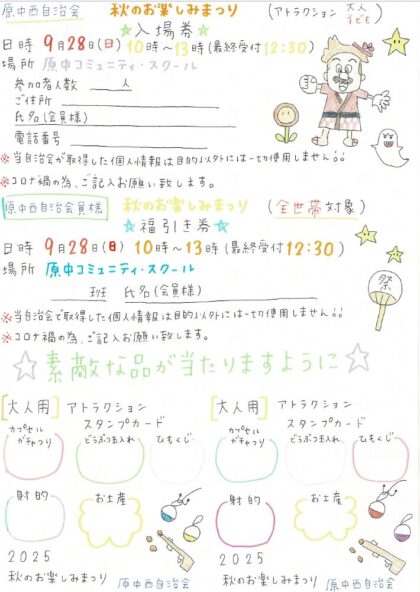 原中西自治会 秋のお楽しみまつり (アトラクション 大人 子ども)
☆入場券☆
日時 9月28(日) 10時〜13時(最終受付12:30)
場所 原中コミュニティ・スクール
参加者人数 人
ご住所
氏名(会員様)
電話番号
※当自治会が取得した個人情報は目的以外には一切使用しません。
※コロナ禍の為、ご記入お願い致します。
原中西自治会員様 秋のお楽しみまつり (全世帯対象)
☆福引き券☆
日時 9月28(日) 10時〜13時(最終受付12:30)
場所 原中コミュニティ・スクール
班 氏名(会員様)
祭
※当自治会で取得した個人情報は目的以外には一切使用しません。
※コロナ禍の為、ご記入お願い致します。
☆素敵な品が当たりますように☆
[大人用] アトラクション
スタンプカード
カプセルガチャつり どうぶつ玉入れ ひもくじ
射的 お土産
2025
秋のお楽しみまつり 原中西自治会
[大人用] アトラクション
スタンプカード
カプセルガチャつり どうぶつ玉入れ ひもくじ
射的 お土産
2025
秋のお楽しみまつり 原中西自治会